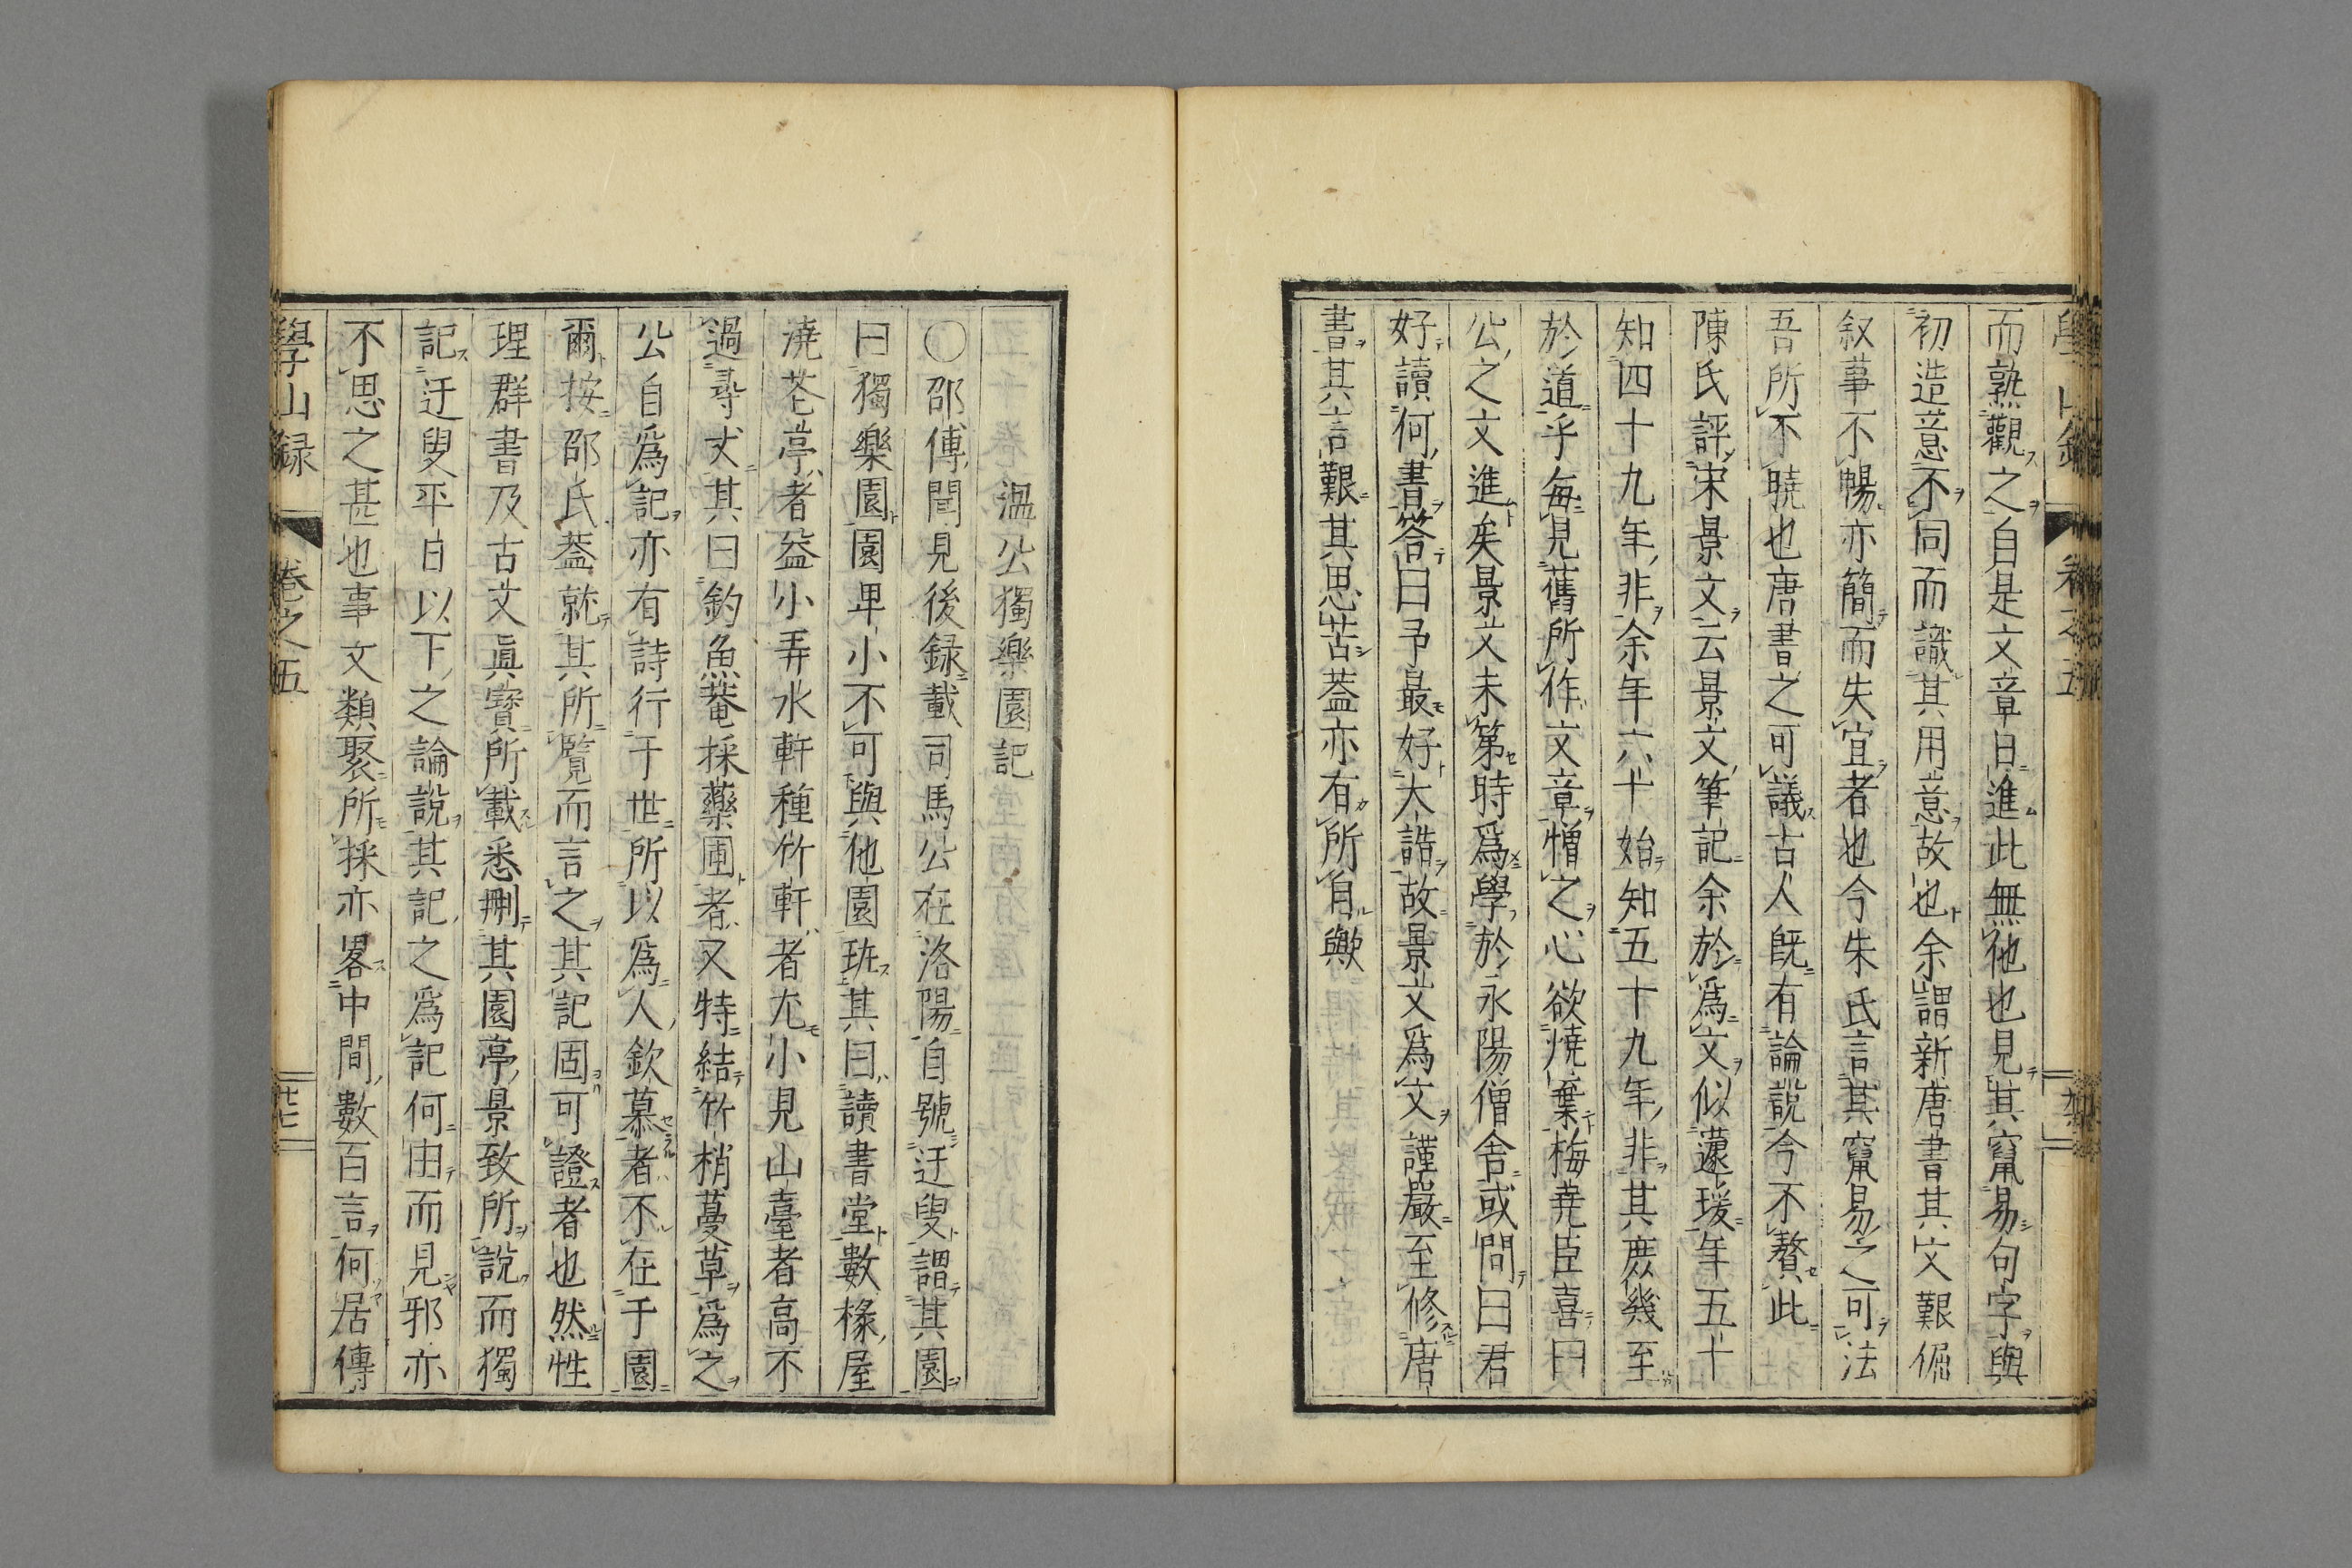 而熟觀之自是文章日進此無他也見其竄易句字與
初造意不同而識其用意故也余謂新唐書其文艱倔
叙事不暢亦簡而失宜者也今朱氏言其竄易之可法
吾所不曉也唐書之可議古人既有論說今不贅此
陳氏評宋景文云景文筆記余於爲文似蘧瑗年五十
知四十九年非余年六十始知五十九年非其庶幾至
於道乎每見舊所作文章憎之心欲燒棄梅堯臣喜曰
公之文進矣景文未第時爲學於永陽僧舍或問曰君
好讀何書答曰予最好大誥故景文爲文謹嚴至修唐
書其言艱其思苦蓋亦有所自歟
溫公獨樂園記
〇邵傅聞見後録載司馬公在洛陽自號迂叟謂其園
曰獨樂園園卑小不可與他園班其曰讀書堂數椽屋
澆花亭者益小弄水軒種竹軒者尤小見山臺者高不
過尋丈其曰釣魚菴採藥圃者又特結竹梢蔓草爲之
公自爲記亦有詩行于世所以爲人欽慕者不在于園
爾按邵氏蓋就其所覽而言之其記固可證者也然性
理群書及古文眞寶所載悉刪其園亭景致所說而獨
記迂叟平日以下之論說其記之爲記何由而見邪亦
不思之甚也事文類聚所採亦畧中間數百言何居傳
學山録
卷之五
廿七